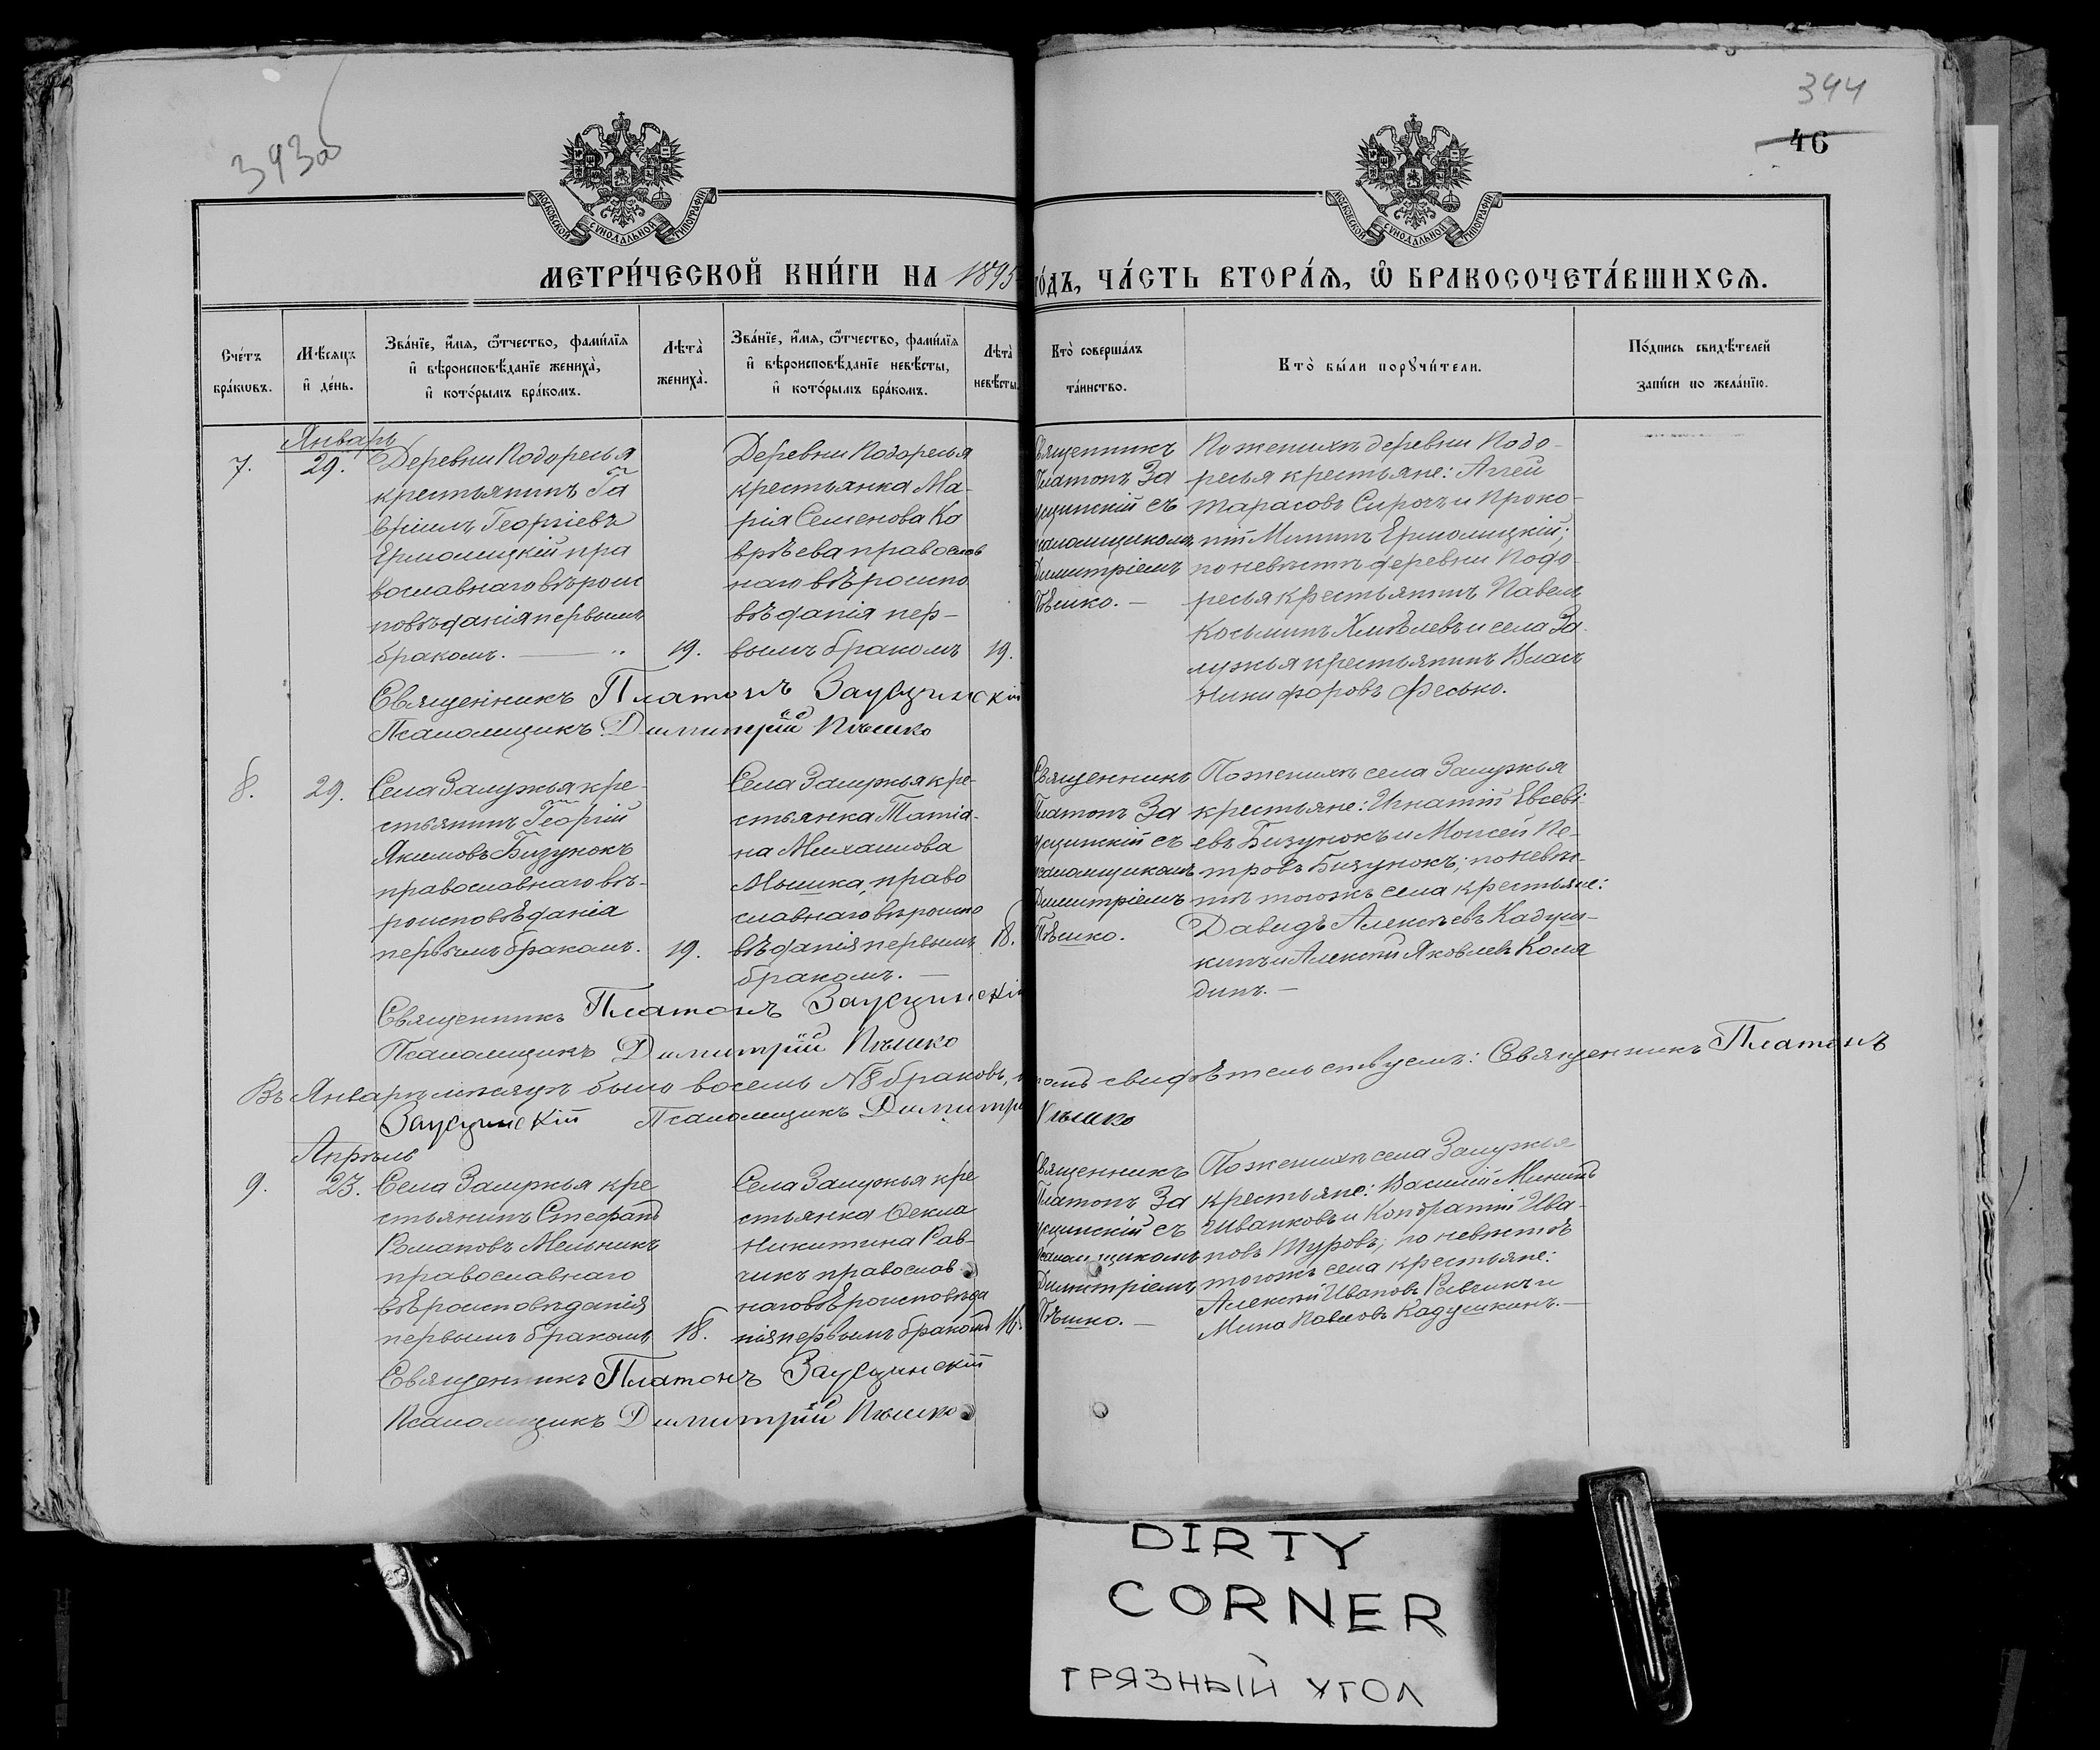 393об
344
46
МОСКОВСКОЙ СѴНОДАЛЬНОЙ ТИПОГРАФІИ
МОСКОВСКОЙ СѴНОДАЛЬНОЙ ТИПОГРАФІИ
МЕТРИ́ЧЕСКОЙ КНИ́ГИ НА 1895
го́дъ, ЧА́СТЬ ВТОРА́Ѧ, Ѡ҆ БРАКОСОЧЕТА́ВШИХСѦ.
Сче́тъ бра́кѡвъ.
Мѣ́сѧцъ и҆ де́нь.
Зва́нїе, и҆́мѧ, ѻ҆́тчество, фами́лїѧ и҆ вѣроисповѣ́данїе жениха̀, и҆ кото́рымъ бра́комъ.
Лѣта̀ жениха̀.
Зва́нїе, и҆́мѧ, ѻ҆́тчество, фами́лїѧ и҆ вѣроисповѣ́данїе невѣ́сты, и҆ кото́рымъ бра́комъ.
Лѣта̀ невѣ́сты.
Кто̀ соверша́лъ та́инство.
Кто̀ бы́ли порꙋчи́тели.
По́дпись свидѣ́телей за́писи по жела́нїю.
Январь
7.
29.
Деревни Подоресья
крестьянинъ Га
вріилъ Георгіевъ
Ермолицкій пра
вославнаго вѣроис
повѣданія первымъ
бракомъ. —
19.
Деревни Подоресья
крестьянка Ма-
рія Семенова Ко
врѣева православ
наго вѣроиспо
вѣданія пер-
вымъ бракомъ
19.
Священникъ
Платонъ За
усцинскій съ
псаломщикомъ
Димитріемъ
Пѣшко. —
По женихѣ деревни Подо-
ресья крестьяне: Аггей
Тарасовъ Сирочъ и Проко-
пій Мининъ Ермолицкій;
по невѣстѣ деревни Подо-
ресья крестьянинъ Павелъ
Косьминъ Хмѣлевъ и села За-
лужья крестьянинъ Власъ
Никифоровъ Фесько.
Священникъ Платонъ Заусцинскій
Псаломщикъ Димитрій Пѣшко
8.
29.
Села Залужья кре-
стьянинъ Георгій
Якимовъ Бизунокъ
православнаго вѣ-
роисповѣданія
первымъ бракомъ.
19.
Села Залужья кре-
стьянка Татіа-
на Михаилова
Мышка, право
славнаго вѣроиспо
вѣданія первымъ
бракомъ. —
18.
Священникъ
Платонъ За
усцинскій съ
псаломщикомъ
Димитріемъ
Пѣшко.
По женихѣ села Залужья
крестьяне: Игнатій Евсеві-
евъ Бизунокъ и Моисей Пе-
тровъ Бизунокъ; по невѣс-
тѣ тогожъ села крестьяне:
Давидъ Алексѣевъ Кадуш-
кинъ и Алексѣй Яковлевъ Коля
динъ. —
Священникъ Платонъ Заусцинскій
Псаломщикъ Димитрій Пѣшко
Въ Январѣ мѣсяцѣ было восемь №8 браковъ, въ чемъ свидѣтельствуемъ: Священникъ Платонъ
Заусцинскій Псаломщикъ Димитрій Пѣшко
Апрѣль
9.
23.
Села Залужья кре
стьянинъ Стефанъ
Романовъ Мельникъ
православнаго
вѣроисповѣданія
первымъ бракомъ
18.
Села Залужья кре
стьянка Ѳекла
Никитина Рав-
чикъ православ-
наго вѣроисповѣда
нія первымъ бракомъ
Священникъ
Платонъ За
усцинскій съ
псаломщикомъ
Димитріемъ
Пѣшко. —
По женихѣ села Залужья
крестьяне: Василій Мининъ
Иванковъ и Кондратій Ива-
новъ Туровъ; по невѣстѣ
тогожъ села крестьяне:
Алексѣй Ивановъ Равчикъ и
Мина Павловъ Кадушкинъ. —
Священникъ Платонъ Заусцинскій
Псаломщикъ Димитрій Пѣшко
DIRTY
CORNER
ГРЯЗНЫЙ УГОЛ